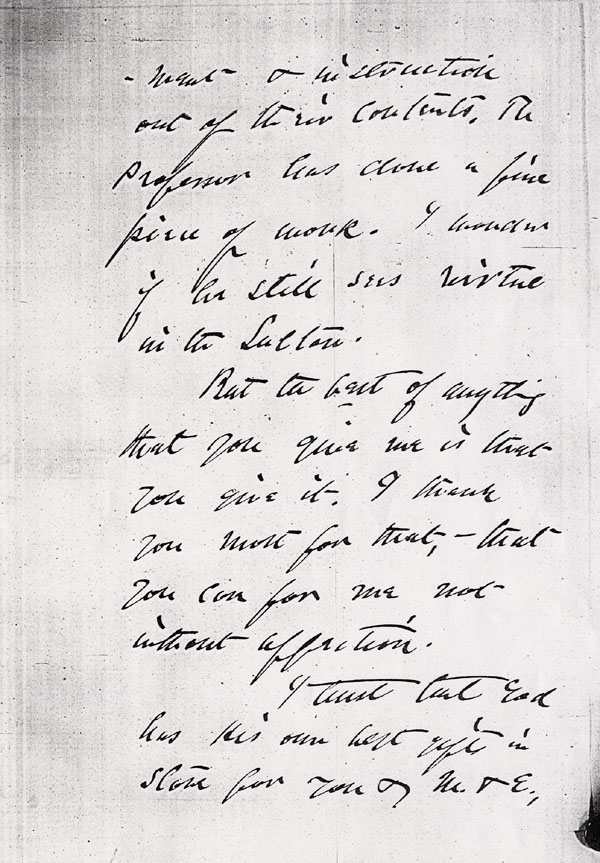 -ment & instruction
out of their contents. The
Professor has done a fine
piece of work. I wonder
if he still sees virtue
in the Sultan.
But the best of anything
that you give me is that
you give it. I thank
you most for that, - that
you can for me not
without affection.
I trust that God
has His own best gifts in
store for you & M. & E.,